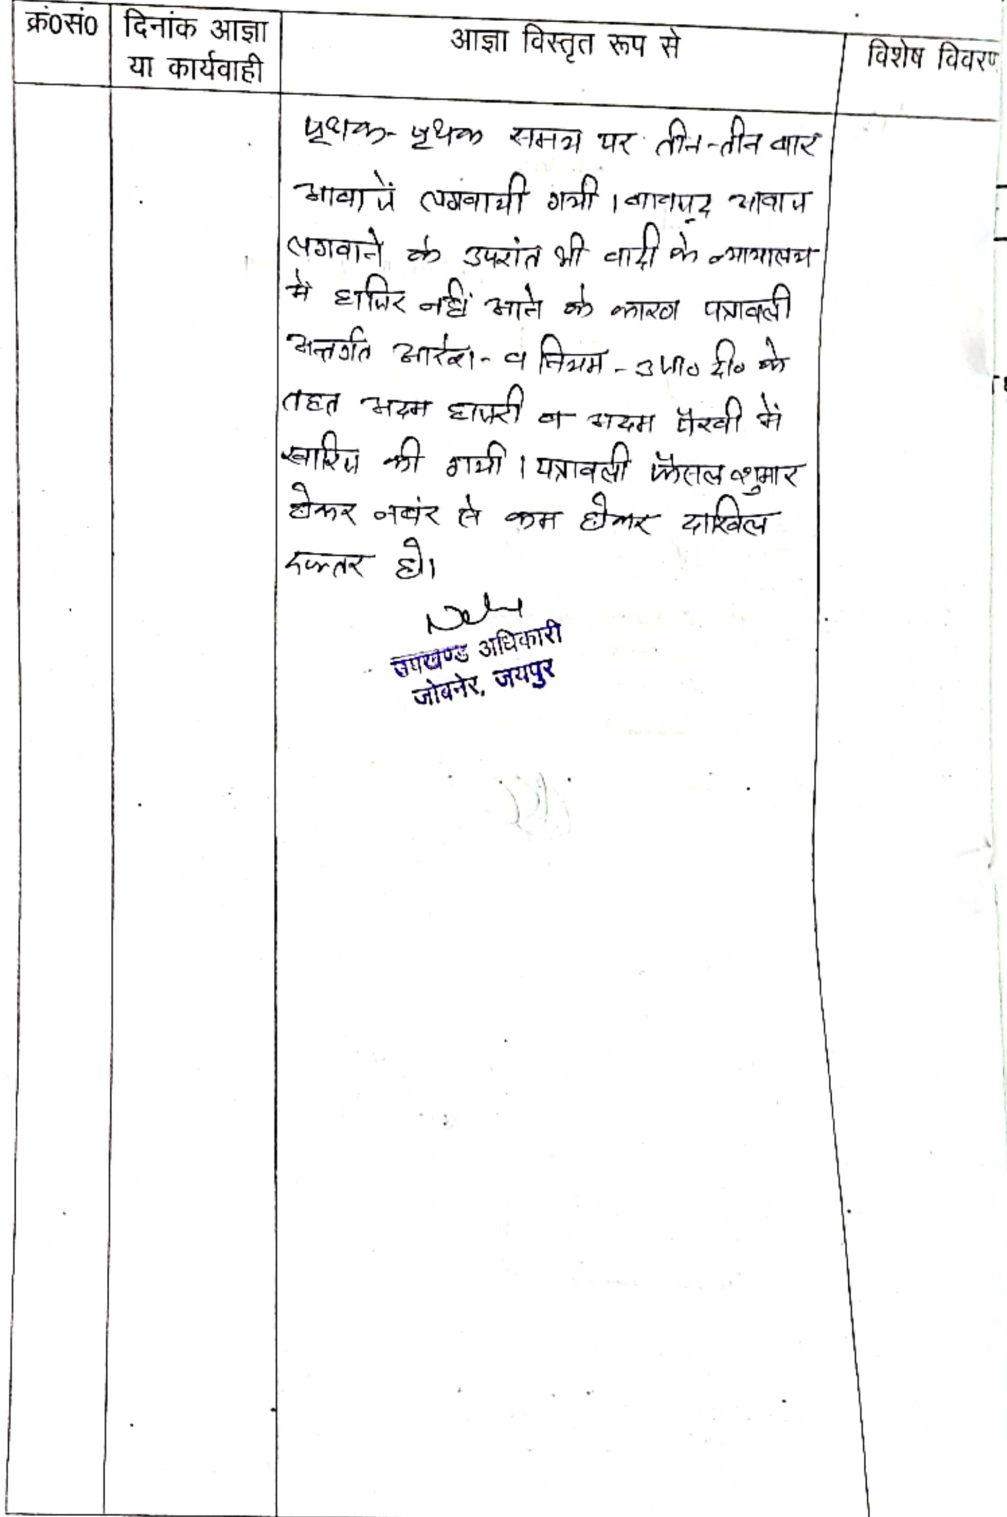 क्रं0सं0
दिनांक आज्ञा
या कार्यवाही
आज्ञा विस्तृत रूप से
विशेष विवरण
पृथक- पृथक समय पर तीन-तीन बार
आवाजें लगवायी गयी । बावजूद आवाज
लगवाने के उपरांत भी वादी के न्यायालय
में हाजिर नहीं आने के कारण पत्रावली
अन्तर्गत आदेश- व नियम -
तहत अदम हाजरी व अदम पैरवी में
खारिज की गयी । पत्रावली फैसल शुमार
होकर नबंर से कम होकर दाखिल
दफ्तर हो।
उपखण्ड अधिकारी
जोबनेर, जयपुर